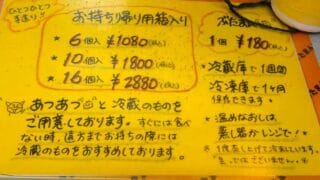 ひとつひとつ
手造り!!
お持ち帰り用箱入り
★ 6個入 ¥1080(税込)
★ 10個入 ¥1800(税込)
★ 16個入 ¥2880(税込)
ぶたまん
1個 ¥180(税込)
★ 冷蔵庫で1週間
冷凍庫で1ヶ月
保存できます。
★ 温めなおしは
蒸し器かレンジで!
あつあつ と 冷蔵のものを
ご用意しております。すぐには食べ
ない時、遠方までお持ちの際には
冷蔵のものをおすすめしております。